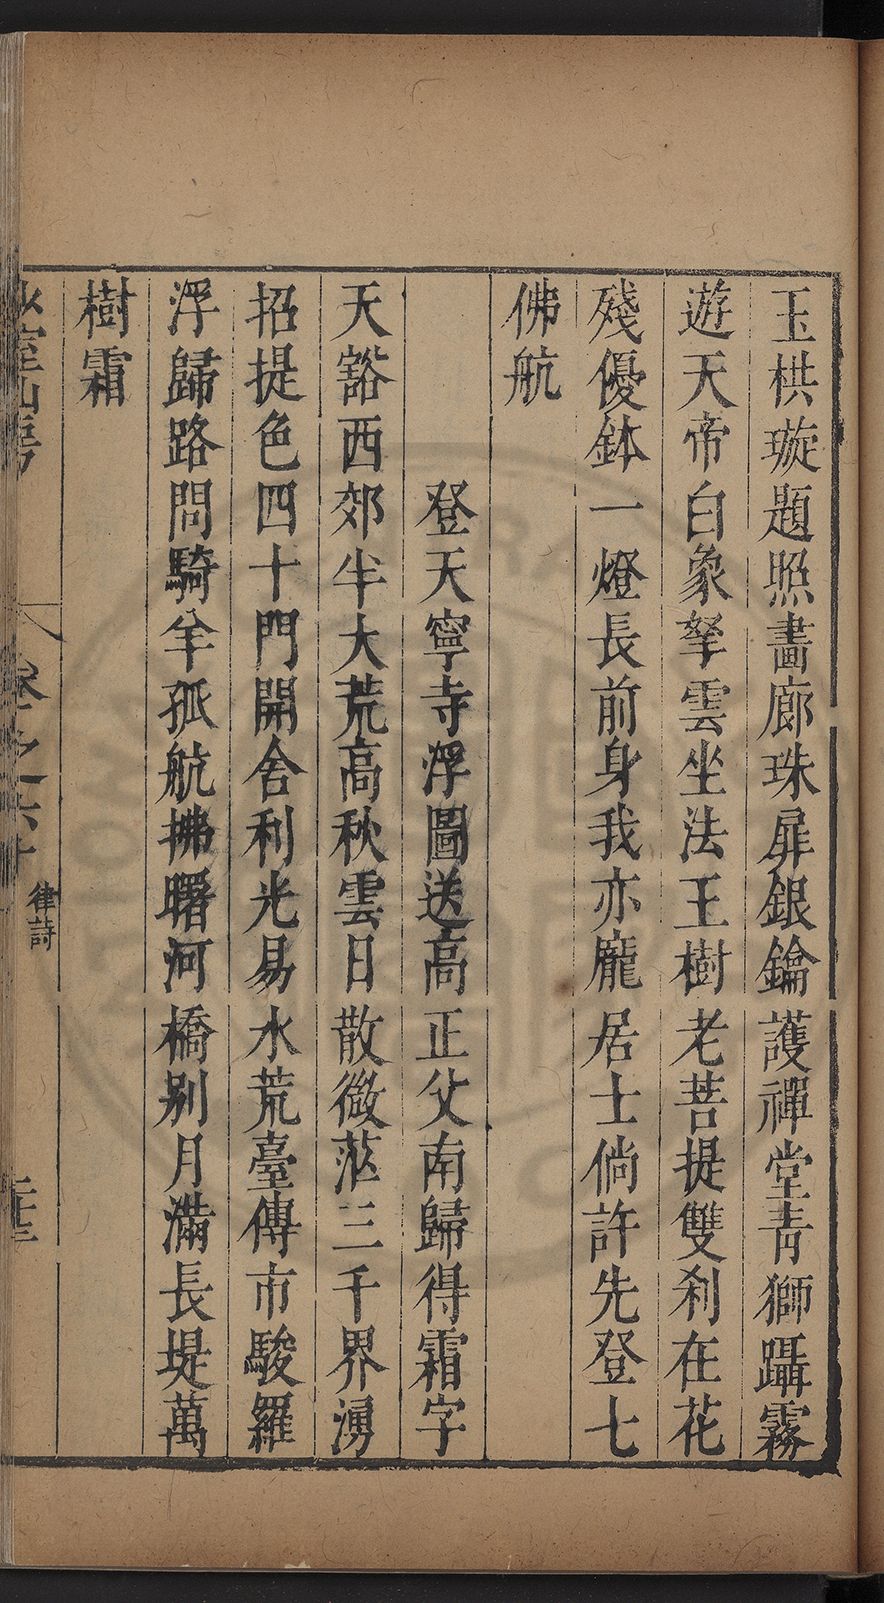 玉栱璇題照畵廊珠扉銀鑰護禪堂青獅躡霧
遊天帝白象拏雲坐法王樹老菩提雙刹在花
殘優鉢一燈長前身我亦龐居士倘許先登七
佛航
登天寧寺浮圖送高正父南歸得霜字
天豁西郊半大荒高秋雲日散微茫三千界湧
招提色四十門開舍利光易水荒臺傳市駿羅
浮歸路問騎羊孤航拂曙河橋别月滿長堤萬
樹霜
卷之六十
律詩